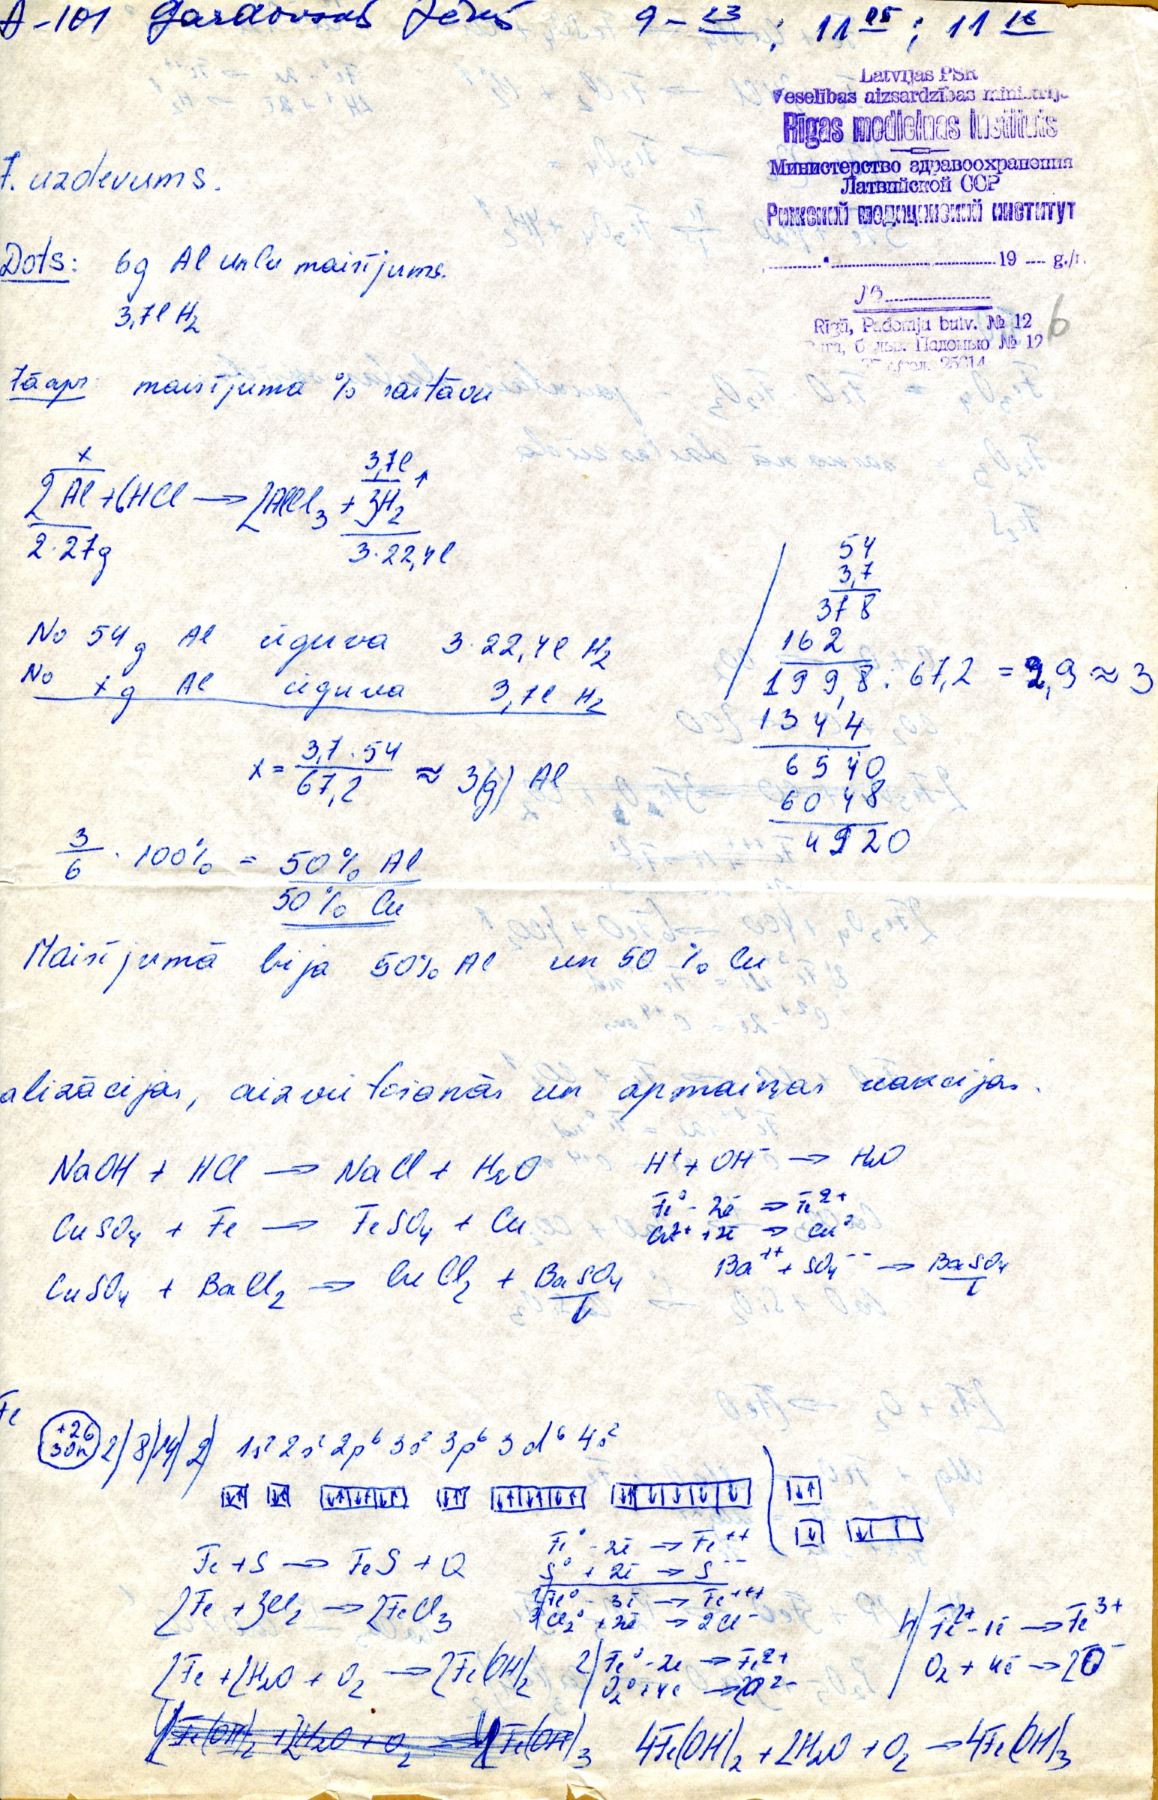 A-101 9 - 23 ; 11 05 ; 11 16
Latvijas PSR
Veselības aizsardzības ministrija
Rīgas medicīnas institūts
Министерство здравоохранения
Латвийской ССР
Рижский медицинский институт
19 g./г.
№
Rīgā, Padomju bulv. № 12
б
Рига, бульв. Падомью № 12
7. uzdevums.
Dots: 6g Al un Cu maisījums.
3,7l H2
Jāapr. maisījuma % sastāvu
x 3,7l
2Al + 6HCl → 2AlCl3 + 3H2 ↑
2·27g 3·22,4l
No 54g Al ieguva 3·22,4l H2
No xg Al ieguva 3,7l H2
x = 3,7·54 / 67,2 ≈ 3(g) Al
54
3,7
378
162
199,8 : 67,2 = 2,9 ≈ 3
1344
6540
6048
4920
3/6 · 100% = 50% Al
50% Cu
Maisījumā bija 50% Al un 50% Cu
alizācijas, aizvietošanās un apmaiņas reakcijas.
NaOH + HCl → NaCl + H2O H+ + OH- → H2O
CuSO4 + Fe → FeSO4 + Cu Fe0 - 2ē → Fe2+
Cu2+ + 2ē → Cu0
CuSO4 + BaCl2 → CuCl2 + BaSO4 ↓ Ba++ + SO4-- → BaSO4 ↓
Fe
+26 30n 2) 8) 14) 2) 1s2 2s2 2p6 3s2 3p6 3d6 4s2
Fe + S → FeS + Q Fe0 - 2ē → Fe++
S0 + 2ē → S--
2Fe + 3Cl2 → 2FeCl3 2 Fe0 - 3ē → Fe+++
3 Cl20 + 2ē → 2Cl-
2Fe + 2H2O + O2 → 2Fe(OH)2 2) Fe0 - 2ē → Fe2+
O20 + 4ē → 2O2-
4) Fe2+ - 1ē → Fe3+
O2 + 4ē → 2O-
4Fe(OH)2 + 2H2O + O2 → 4Fe(OH)3 4Fe(OH)2 + 2H2O + O2 → 4Fe(OH)3